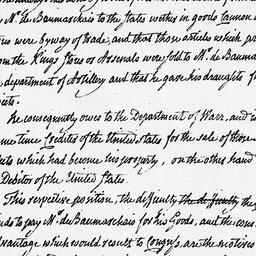 M. de Beaumarchais to the States within in goods Cannon
were by way of trade, and that those articles which
from the Kings stores or Arsenals were sold to M. de Beaum
department of Artillery and that he gave his draughts f
He consequently owes to the Department of Warr, and
me time Creditor of the United States for the sale of those
ects which had become his property, on the other hand
Debitor of the United States.
This respective position, the difficulty the difficulty the
nds to pay M. de Beaumarchais for his Goods, and the
dvantage which would result to Congress, are the motives